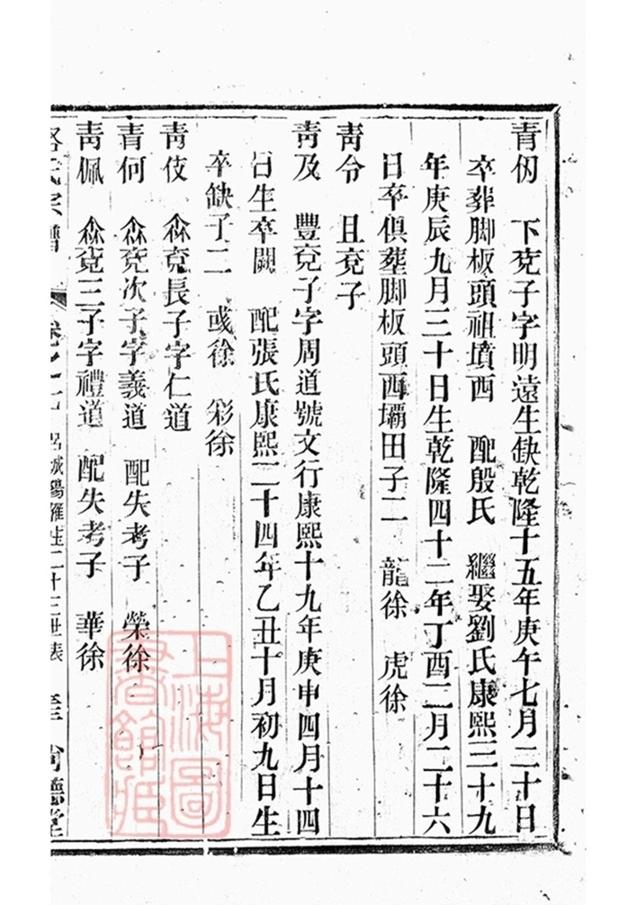 青㓜 下兗子字明遠生缺乾隆十五年庚午七月二十日
卒葬脚板頭祖墳西 配殷氏 繼娶劉氏康熙三十九
年庚辰九月三十日生乾隆四十二年丁酉二月二十六
日卒俱塟脚板頭西壩田子二 龍徐 虎徐
靑令 且兗子
靑及 豐兗子字周道號文行康熙十九年庚申四月十四
日生卒闕 配張氏康熙二十四年乙丑十月初九日生
卒缺子二 彧徐 彩徐
靑伎 㐱兗長子字仁道
青何 㐱兗次子字義道 配失考子 榮徐
靑佩 㐱兗三子字禮道 配失考子 華徐
氏宗譜 卷 呂城陽雁 二十三世表 尙德堂
上海圖書館藏